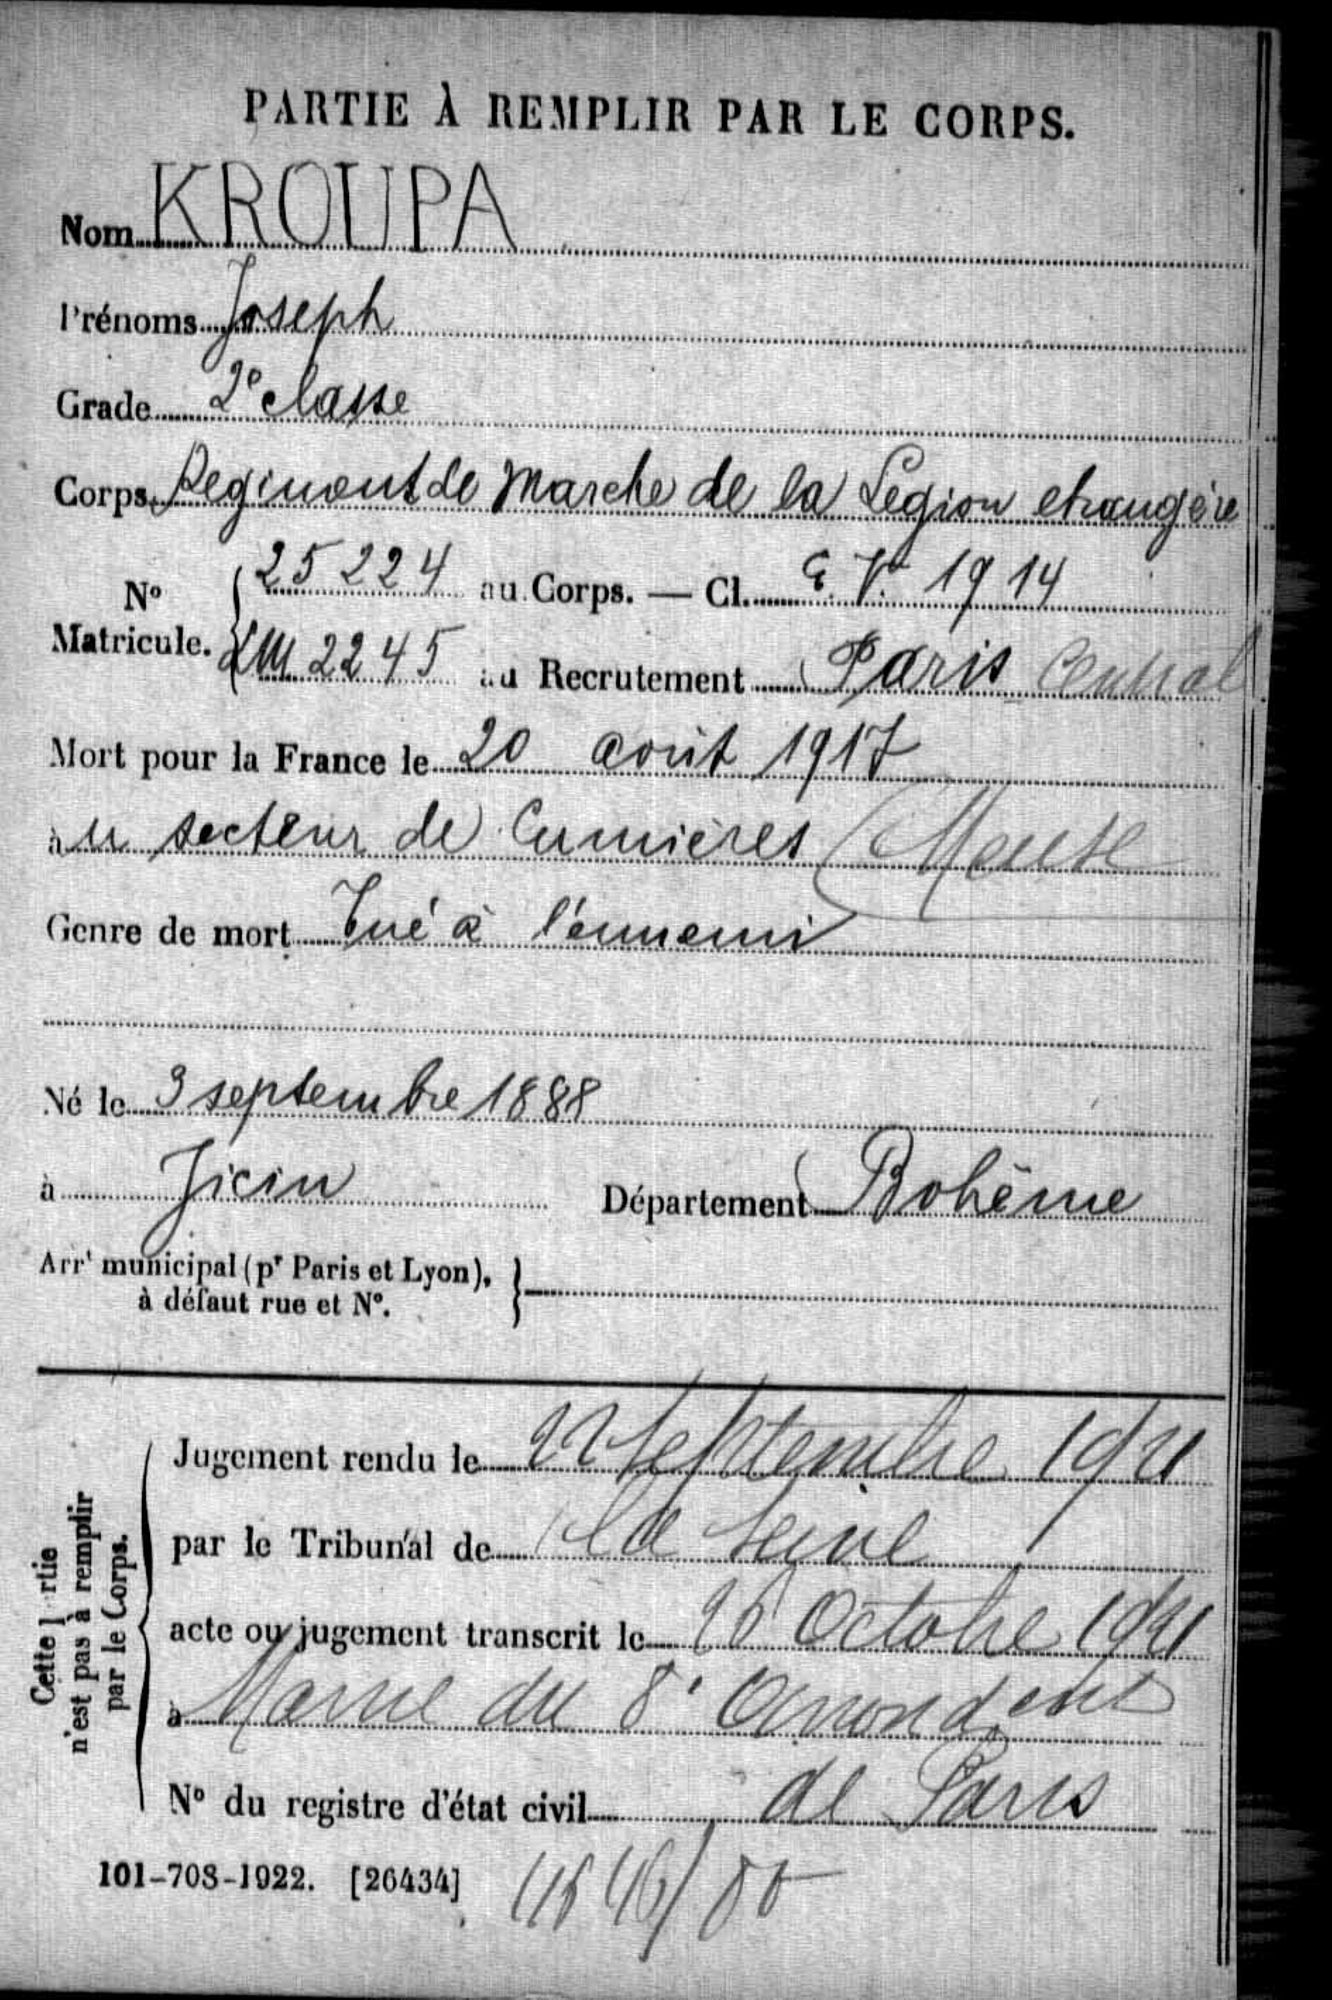 PARTIE À REMPLIR PAR LE CORPS.
Nom KROUPA
Prénoms Joseph
Grade 2e classe
Corps Regiment de Marche de la Légion etrangère
No Matricule. 25224 au Corps. — Cl. E.V. 1914
LM 2245 au Recrutement Paris Central
Mort pour la France le 20 août 1917
au secteur de Cumières (Meuse
Genre de mort Tué à l'ennemi
Né le 3 septembre 1888
à Jicin Département Bohême
Arrt municipal (pr Paris et Lyon),
à défaut rue et No.
Cette partie
n'est pas à remplir
par le Corps.
Jugement rendu le 22 Septembre 1921
par le Tribunal de la Seine
acte ou jugement transcrit le 26 Octobre 1921
à Mairie du 8e Arrondent
No du registre d'état civil de Paris
101-708-1922. [26434]